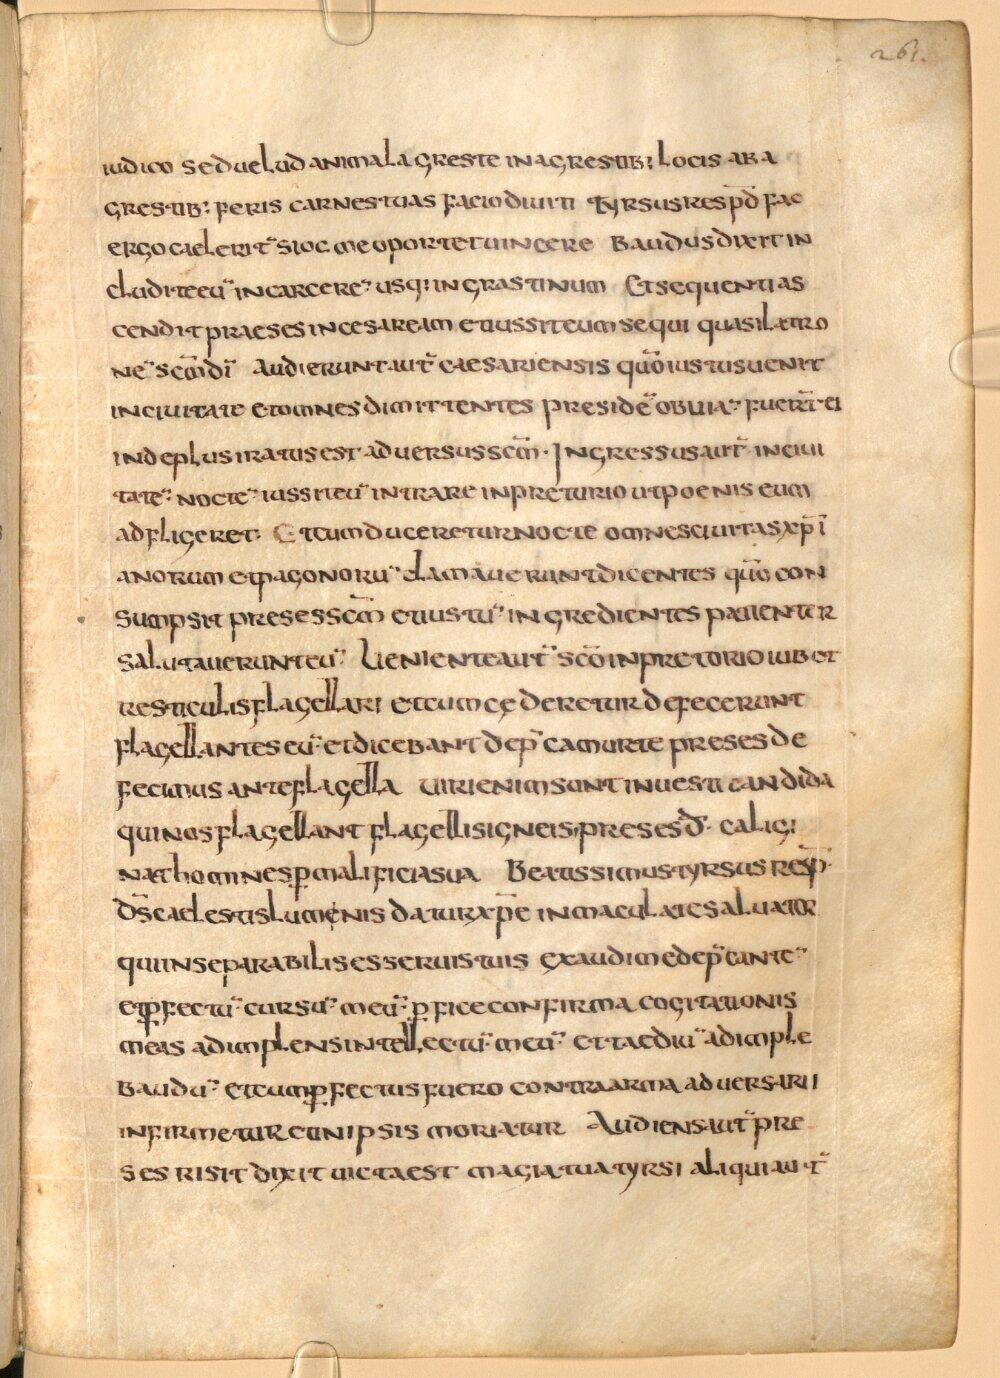 261.
iudico sed uelud animal agreste in agrestib; locis ab a
grestib; feris carnes tuas facio diuiti Tyrsus resp̄d fac
ergo caelerit̄ si oc me oportet uincere Baudus dixit in
cludite eū in carcerē usq; in grastinum Et sequenti as
cendit praeses in cesaream et iussit eum sequi quasi latro
nē sc̄m dī Audierunt aut̄ caesariensis quō iustus uenit
in ciuitate et omnes dimittentes presidē obuiā fuer̄t ei
inde plus iratus est aduersus sc̄m · Ingressus aut̄ in ciui
tatē noctē iussit eū intrare in preturio ut poenis eum
adfligeret · Et cum duceretur nocte omnes ciuitas xp̄i
anorum et pagonorū clamauerunt dicentes quō con
sumpsit preses sc̄m et iustū ingredientes patienter
salutauerunt eū Ueniente aut̄ sc̄o in pretorio iubet
resticulis flagellari et cum cęderetur defecerunt
flagellantes eū et dicebant dep̄camur te preses de
fecimus ante flagella uiri enim sunt in uesti candida
qui nos flagellant flagellis igneis, preses đ · caligi
nat homines ꝑ malificia sua Beatissimus tyrsus resp̄ ·
d̄s caelestis lumenis datur xp̄e inmaculate saluator
qui inseparabilis es seruis tuis exaudi me dep̄cantē
et ꝑfectū cursū meū ꝑfice confirma cogitationis
meas adimplens intellectū meū et taediū adimple
baudū et cum ꝑfectus fuero contra arma aduersarii
infirmetur et in ipsis moriatur Audiens aut̄ pre
ses risit dixit uicta est magia tua tyrsi aliqui aut̄